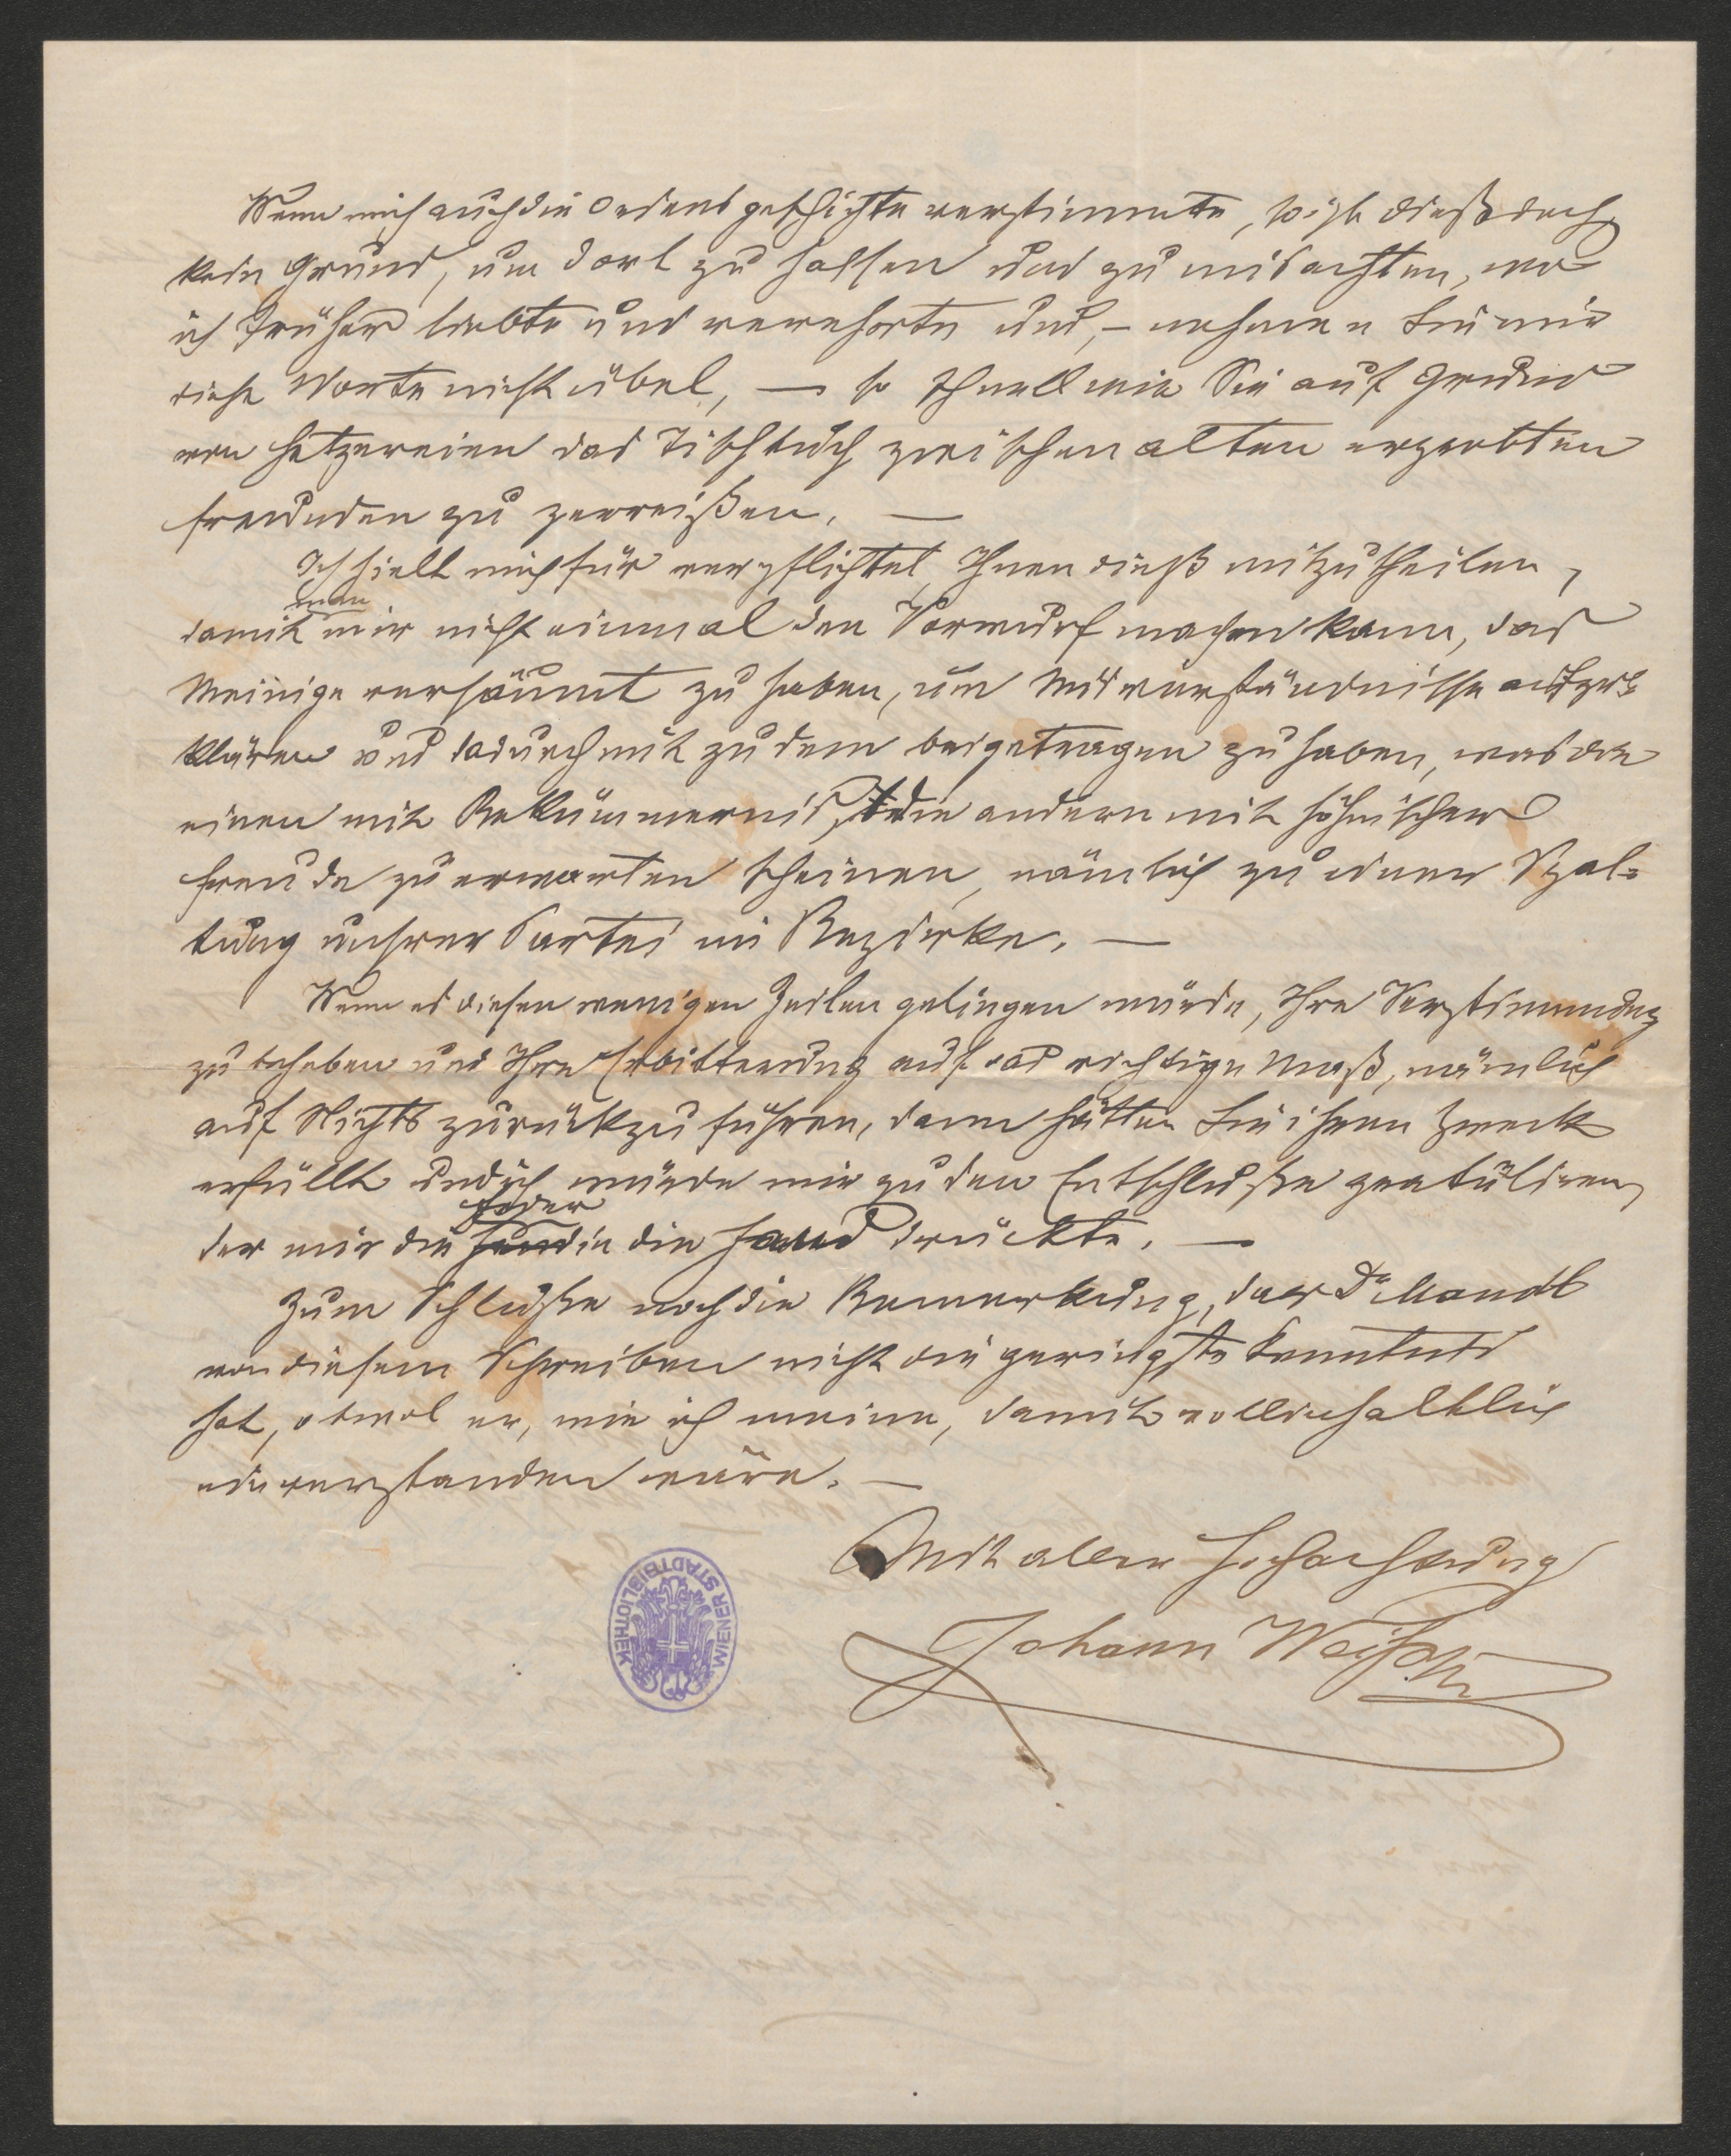 Wenn mich auch die Ordensgeschichte verstimmte, so ist dieß doch
kein Grund, um dort zu hassen und zu misachten, wo
ich früher liebte und verehrte und, – nehmen Sie mir
diese Worte nicht übel, — so schnell wie Sie auf Grund
von Hetzereien das Tischtuch zwischen alten erprobten
Freunden zu zerreißen. —
Ich hielt mich für verpflichtet, Ihnen dieß mitzutheilen,
man
damit mir nicht einmal den Vorwurf machen kann, das
Meinige versäumt zu haben, um Misverständnisse aufzu=
klären und dadurch mit zu dem beigetragen zu haben, was die
einen mit Bekümmernis, die andern mit höhnischer
Freude zu erwarten scheinen, nämlich zu einer Spal=
tung unsrer Partei im Bezirke. —
Wenn es diesen wenigen Zeilen gelingen würde, Ihre Verstimmung
zu beheben und Ihre Erbitterung auf das richtige Maß, nämlich
auf Nichts zurückzuführen, dann hätten Sie ihren Zweck
erfüllt und ich würde mir zu dem Entschluße gratuliren,
Feder
der mir die in die Hand drückte. —
Zum Schluße noch die Bemerkung, dass Dr Mandl
von diesem Schreiben nicht die geringste Kenntnis
hat, obwol er, wie ich meine, damit vollinhaltlich
einverstanden wäre. —
Mit aller Hochachtung
Johann Weiß
WIENER STADTBIBLIOTHEK